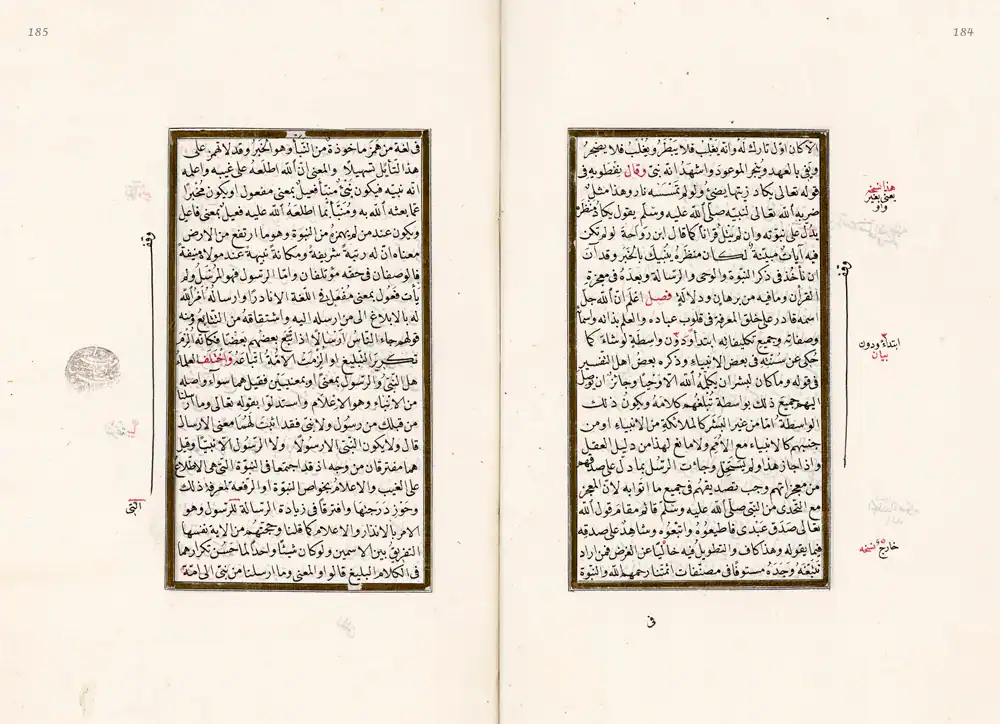 184
الا كان اول تارك له وانه يغلب فلا يبطر ويغلب فلا يضجر
ويفى بالعهد وينجز الموعود واشهد انه نبى وقال نفطويه فى
قوله تعالى يكاد زيتها يضئ ولو لم تمسسه نار وهذا مثل
ضربه الله تعالى لنبيه صلى الله عليه وسلم يقول يكاد منظره
يدل على نبوته وان لم يتل قرآنا كما قال ابن رواحة لو لم تكن
فيه آيات مبينة لكان منظره ينبيك بالخبر وقد آن
ان نأخذ فى ذكر النبوة والوحى والرسالة وبعده فى معجزة
القرآن وما فيه من برهان ودلالة فصل اعلم ان الله جل
اسمه قادر على خلق المعرفة فى قلوب عباده والعلم بذاته واسمائه
وصفاته وجميع تكليفاته ابتداء دون واسطة لو شاء كما
حكى عن سنته فى بعض الانبياء وذكره بعض اهل التفسير
فى قوله وما كان لبشر ان يكلمه الله الا وحيا وجائز ان يوصل
اليهم جميع ذلك بواسطة تبلغهم كلامه وتكون ذلك
الواسطة اما من غير البشر كالملائكة مع الانبياء او من
جنسهم كالانبياء مع الامم ولا مانع لهذا من دليل العقل
واذا جاز هذا ولم يستحل وجاءت الرسل بما دل على صدقهم
من معجزاتهم وجب تصديقهم فى جميع ما اتوا به لان المعجز
مع التحدى من النبى صلى الله عليه وسلم قائم مقام قول الله
تعالى صدق عبدى فاطيعوه واتبعوه وشاهد على صدقه
فيما يقوله وهذا كاف والتطويل فيه خارج عن الغرض فمن اراد
تتبعه وجده مستوفا فى مصنفات ائمتنا رحمهم الله والنبوة
فى
يعنى بغير
واو
وقف
ابتداء ودون
بيان
خارج نسخه
185
فى لغة من همز ماخوذة من النبأ وهو الخبر وقد لا تهمز على
هذا التأويل تسهيلا والمعنى ان الله اطلعه على غيبه واعلمه
انه نبيه فيكون نبئ منبأ فعيل بمعنى مفعول او يكون مخبرا
عما بعثه الله به ومنبأ بما اطلعه الله عليه فعيل بمعنى فاعل
ويكون عند من لم يهمزه من النبوة وهو ما ارتفع من الارض
معناه ان له رتبة شريفة ومكانة نبيهة عند مولاه منيفة
فالوصفان فى حقه مؤتلفان واما الرسول فهو المرسل ولم
يأت فعول بمعنى مفعل فى اللغة الا نادرا وارساله امر الله
له بالابلاغ الى من ارسله اليه واشتقاقه من التتابع ومنه
قولهم جاء الناس ارسالا اذا اتبع بعضهم بعضا فكأنه الزم
تكرير التبليغ او الزمت الامة اتباعه واختلف العلماء
هل النبى والرسول بمعنى او بمعنيين فقيل هما سواء واصله
من الانباء وهو الاعلام واستدلوا بقوله تعالى وما ارسلنا
من قبلك من رسول ولا نبى فقد اثبت لهما معنى الارسال
قال ولا يكون النبى الا رسولا ولا الرسول الا نبيا وقيل
هما مفترقان من وجه اذ قد اجتمعا فى النبوة التى هى الاطلاع
على الغيب والاعلام بخواص النبوة او الرفعة لمعرفة ذلك
وحوز درجتها وافترقا فى زيادة الرسالة للرسول وهو
الامر بالانذار والاعلام كما قلنا وحجتهم من الاية نفسها
التفريق بين الاسمين ولو كان شيئا واحدا لما حسن تكرارهما
فى الكلام البليغ قالوا والمعنى وما ارسلنا من نبى الى امة
وقف
النبى